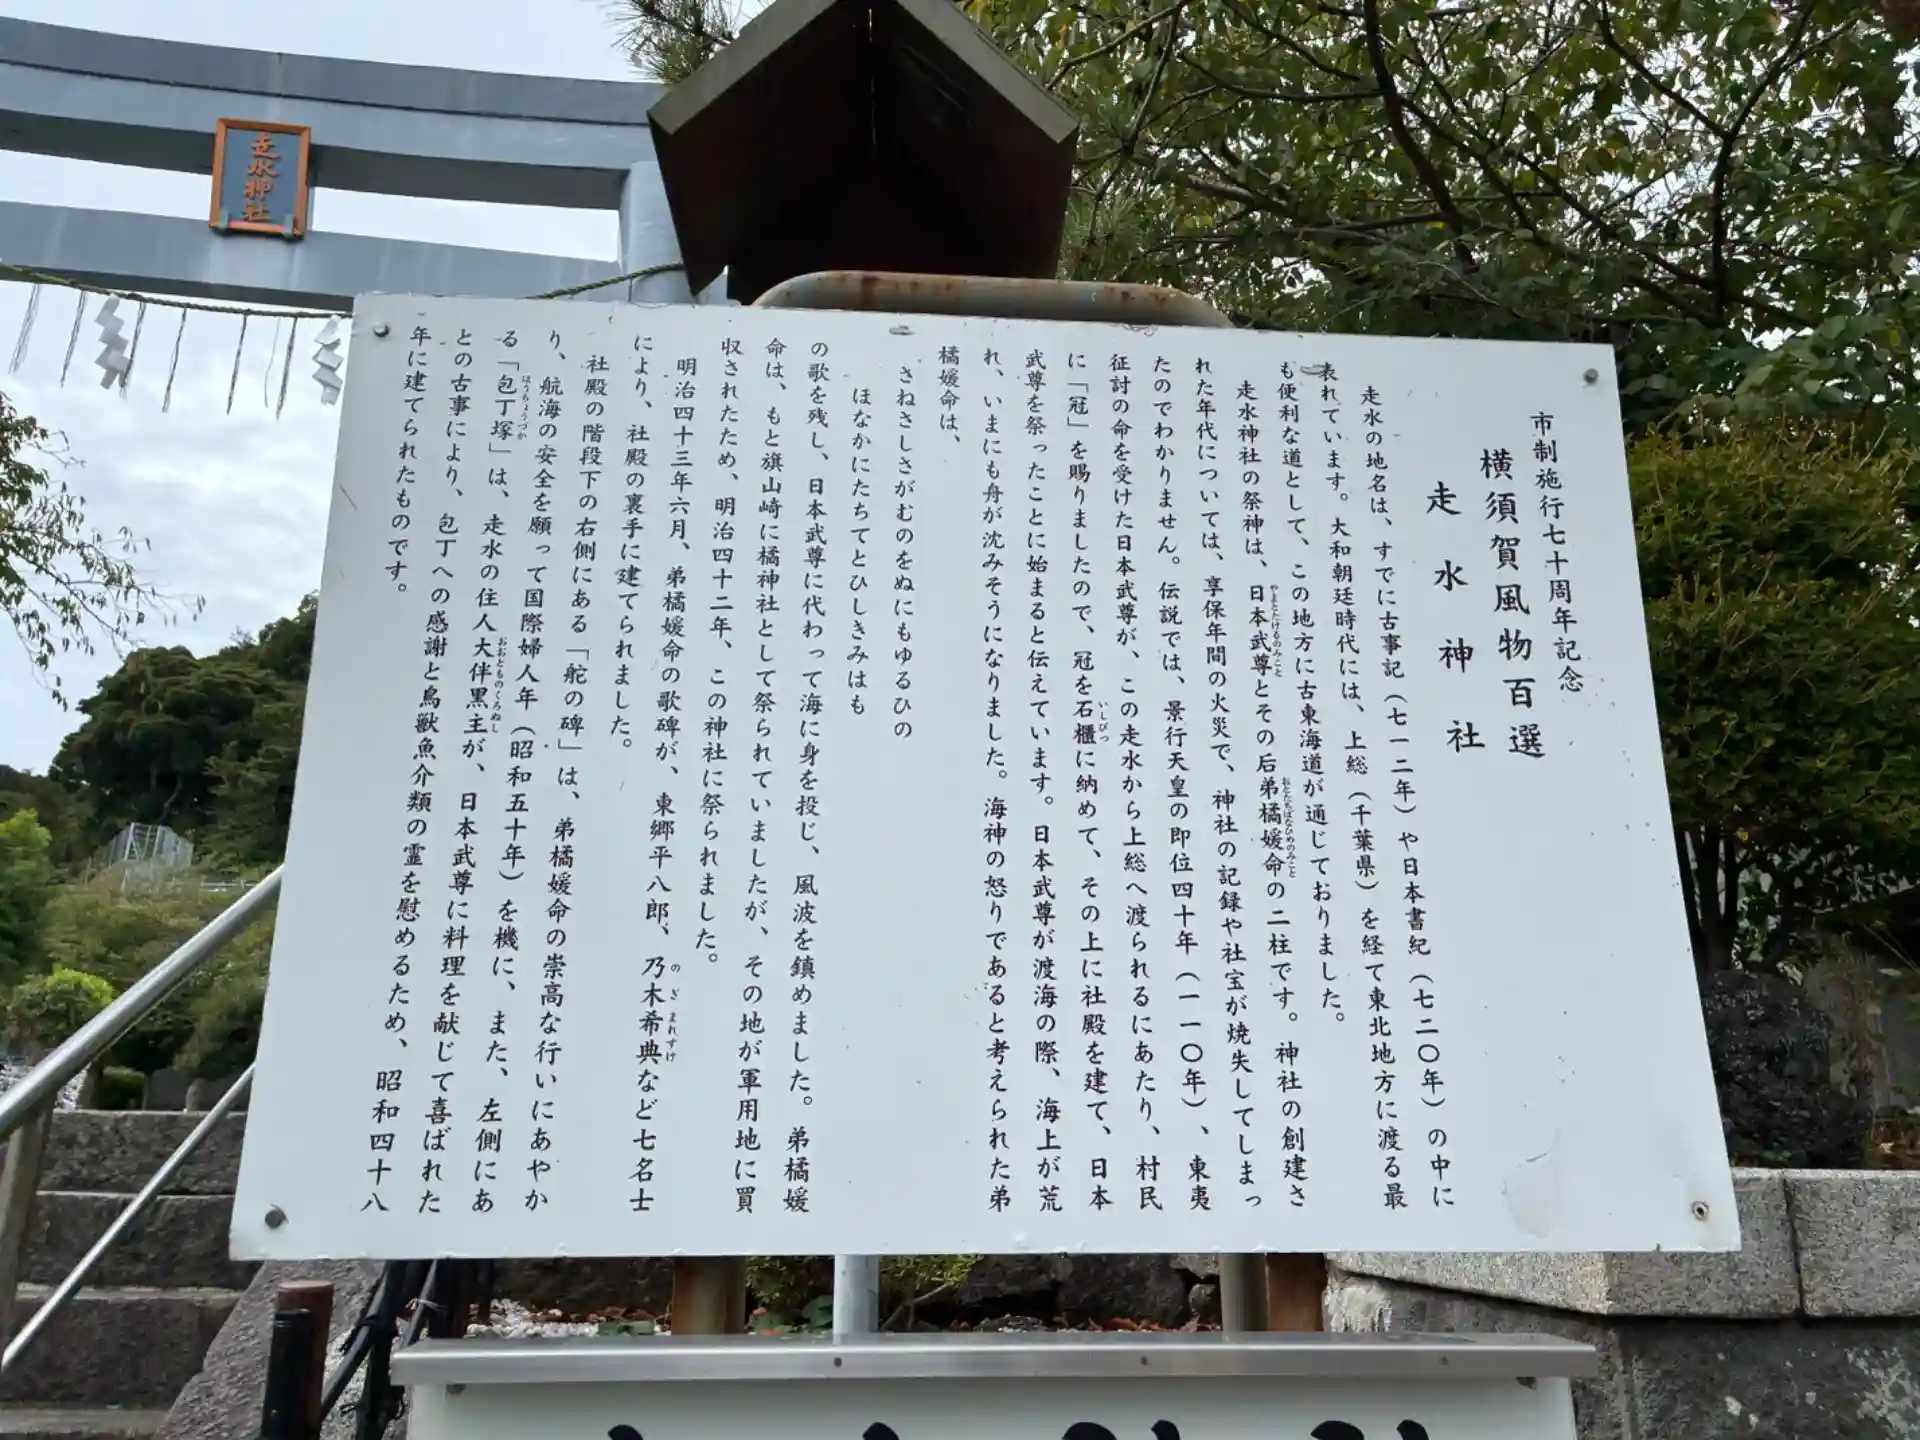 走水神社
市制施行七十周年記念
横須賀風物百選
走水神社
走水の地名は、すでに古事記（七一二年）や日本書紀（七二〇年）の中に
表れています。大和朝廷時代には、上総（千葉県）を経て東北地方に渡る最
も便利な道として、この地方に古東海道が通じておりました。
走水神社の祭神は、日本武尊とその后弟橘媛命の二柱です。神社の創建さ
やまとたけるのみこと
おとたちばなひめのみこと
れた年代については、享保年間の火災で、神社の記録や社宝が焼失してしまっ
たのでわかりません。伝説では、景行天皇の即位四十年（一一〇年）、東夷
征討の命を受けた日本武尊が、この走水から上総へ渡られるにあたり、村民
に「冠」を賜りましたので、冠を石櫃に納めて、その上に社殿を建て、日本
いしびつ
武尊を祭ったことに始まると伝えています。日本武尊が渡海の際、海上が荒
れ、いまにも舟が沈みそうになりました。海神の怒りであると考えられた弟
橘媛命は、
さねさしさがむのをぬにもゆるひの
ほなかにたちてとひしきみはも
の歌を残し、日本武尊に代わって海に身を投じ、風波を鎮めました。弟橘媛
命は、もと旗山崎に橘神社として祭られていましたが、その地が軍用地に買
収されたため、明治四十二年、この神社に祭られました。
明治四十三年六月、弟橘媛命の歌碑が、東郷平八郎、乃木希典など七名士
のぎまれすけ
により、社殿の裏手に建てられました。
社殿の階段下の右側にある「舵の碑」は、弟橘媛命の崇高な行いにあやか
り、航海の安全を願って国際婦人年（昭和五十年）を機に、また、左側にあ
る「包丁塚」は、走水の住人大伴黒主が、日本武尊に料理を献じて喜ばれた
ほうちょうづか
おおとものくろぬし
との古事により、包丁への感謝と鳥獣魚介類の霊を慰めるため、昭和四十八
年に建てられたものです。